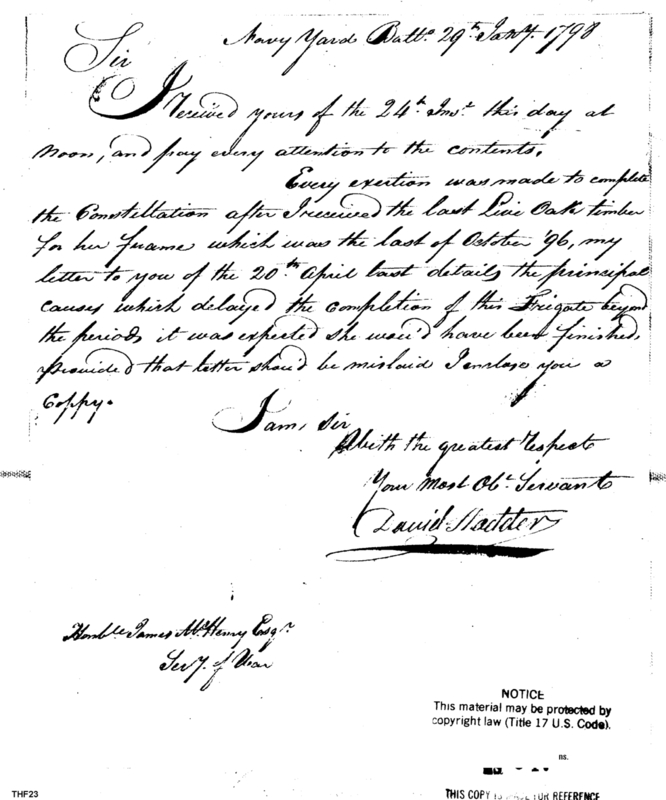 Navy Yard Balto. 29th Jany. 1798
Sir
I received yours of the 24th Inst. this day at
noon, and pay every attention to the contents.
Every exertion was made to complete
the Constellation after I received the last Live Oak timber
for her frame which was the last of October 96, my
letter to you of the 20th April last details the principal
causes which delayed the completion of this Frigate beyond
the periods it was expected she wou'd have been finished,
provided that letter shou'd be mislaid I enclose you a
Coppy.
I am, Sir
With the greatest respect
Your Most Obt. Servant
David Stodder
Honble James McHenry Esqr.
Secy. of War
NOTICE
This material may be protected by
copyright law (Title 17 U.S. Code).
ns.
THF23
THIS COPY IS FOR REFERENCE